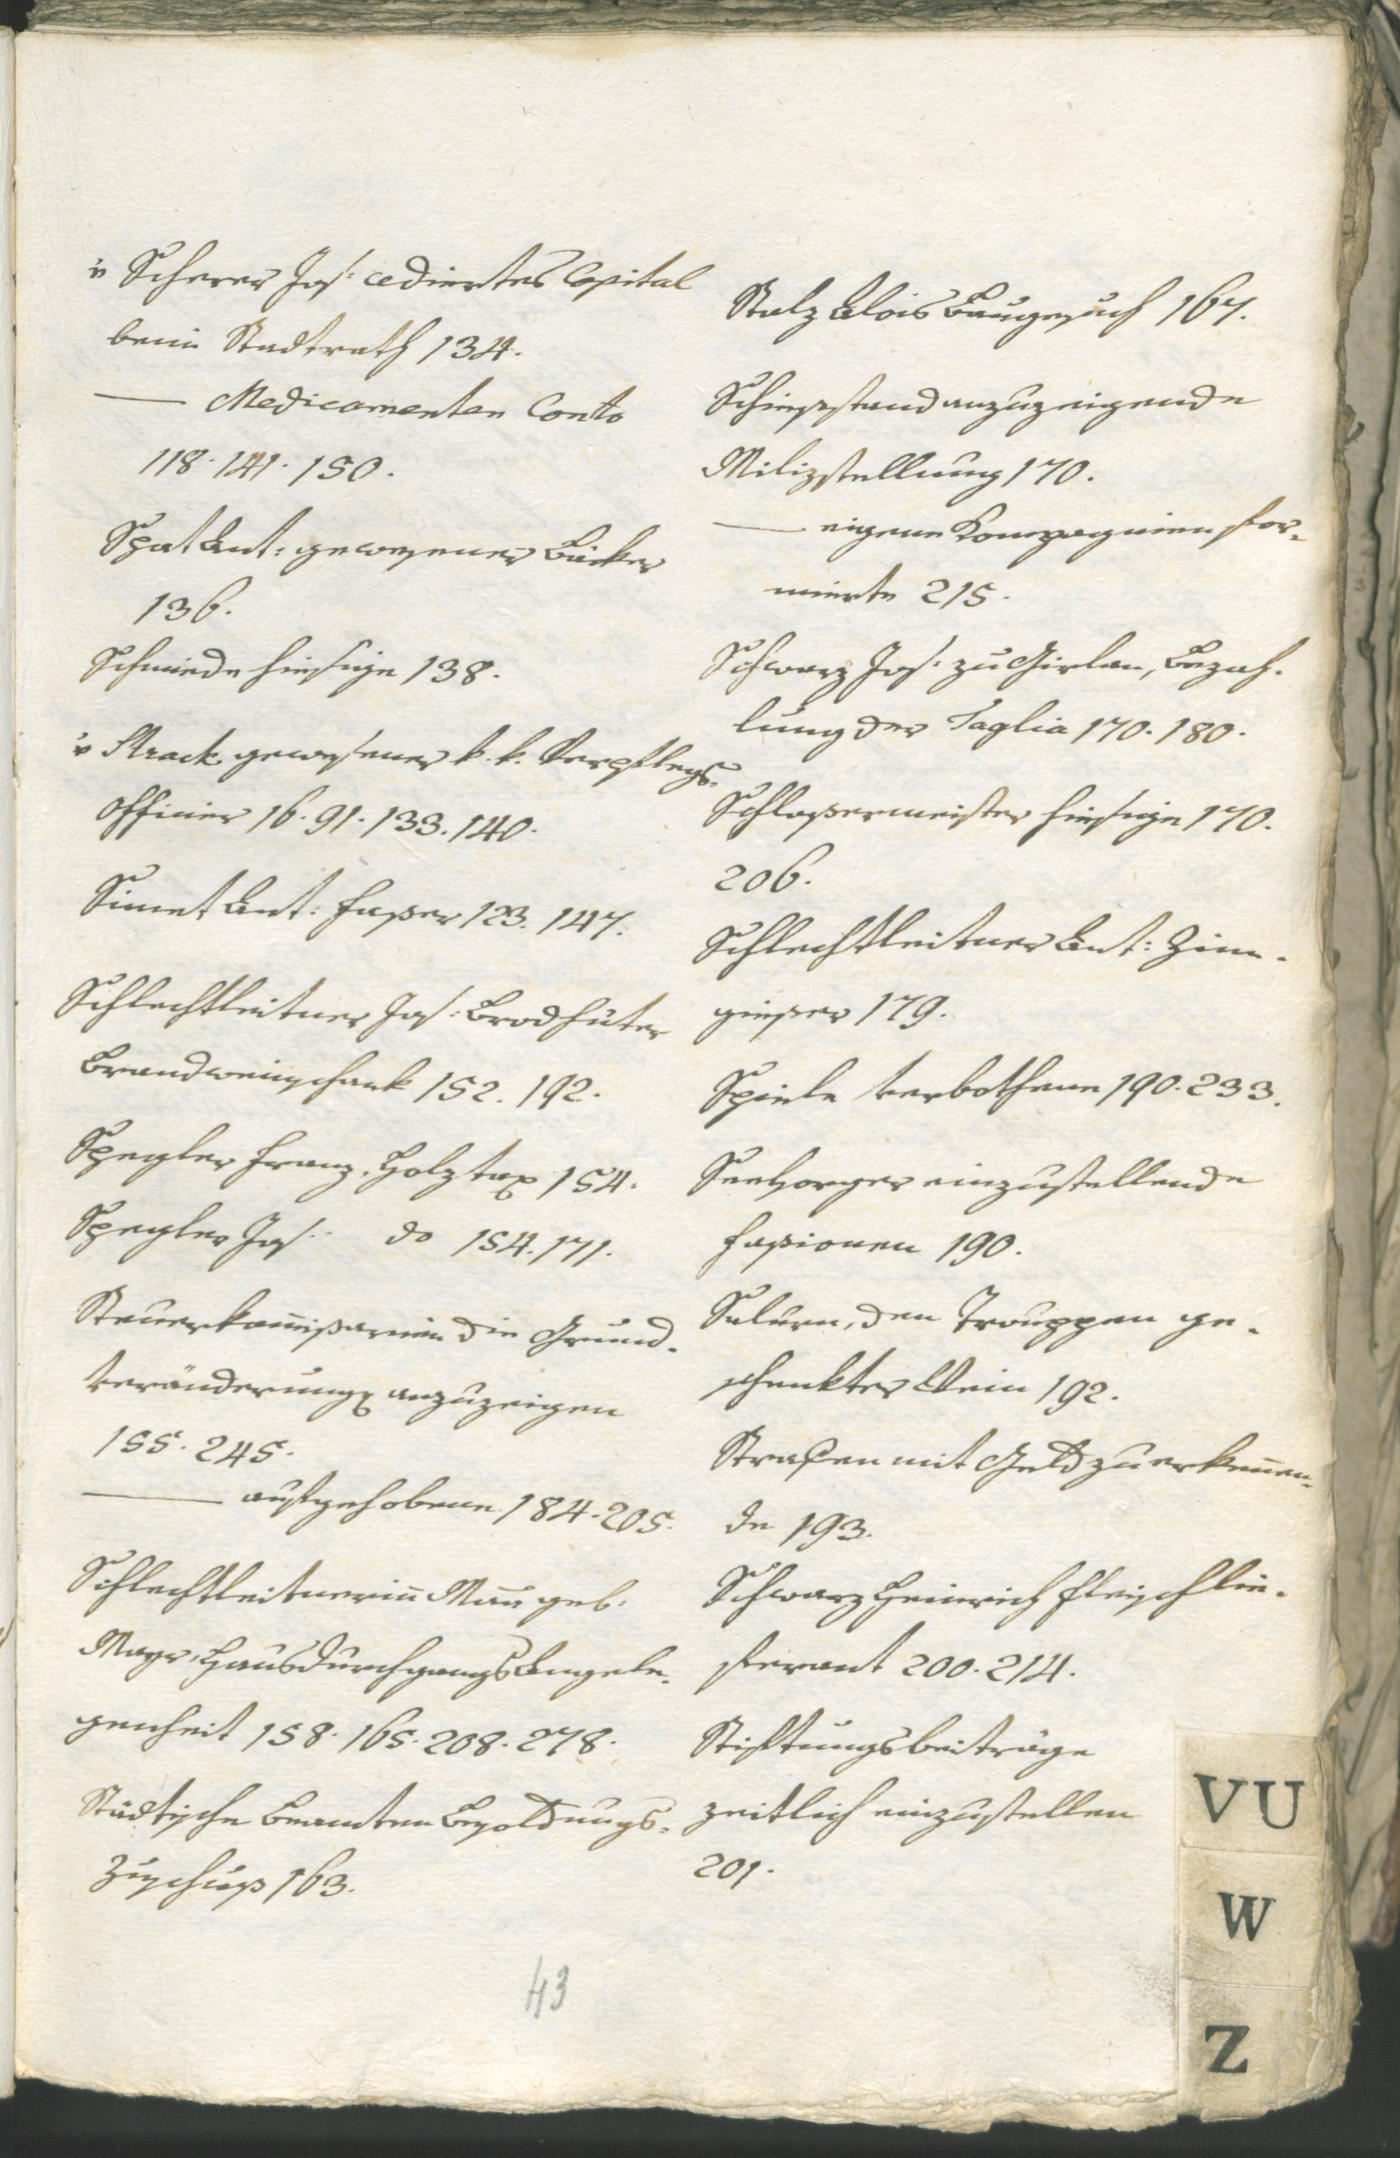 v Scherer Jos: cediertes Capital
beim Stadtrath 134.
—— Medicamenten Conto
118. 141. 150.
Spat Ant: gewesener Bäcker
136.
Schmiede hiesige 138.
v Strack gewesener k. k. Verpflegs-
officier 16. 91. 133. 140.
Simet Ant: Faßer 123. 147.
Schlechtleitner Jos: Brodhüter
Brandweinschank 152. 192.
Spegler Franz, Holztax 154.
Spegler Jos: do 154. 171.
Steuerkom̅ißarien die Grund-
veränderung anzuzeigen
155. 245.
—— aufgehobene 184. 205.
Schlechtleitnerin̅ geb.
Mayr, Hausdurchgangs Angele-
genheit 158. 165. 208. 278.
Städtische Beamten Besoldungs-
Zuschuß 163.
43
Stolz Alois Baugesuch 167.
Schießstand anzuzeigende
Milizstellung 170.
—— eigene Kompagnien for-
mierte 215.
Schwarz Jos: zu Girlan, Bezah-
lung der Taglia 170. 180.
Schloßermeister hiesige 170.
206.
Schlechtleitner Ant: Zinn-
gießer 179.
Spiele verbothene 190. 233.
Seelsorger einzustellende
Faßionen 190.
Salurn, den Trouppen ge-
schenkter Wein 192.
Strafen mit Geld zu erken̅en-
de 193.
Schwarz Heinrich Fleischlie-
ferant 200. 214.
Stiftungsbeiträge
zeitlich einzustellen
201.
VU
W
Z